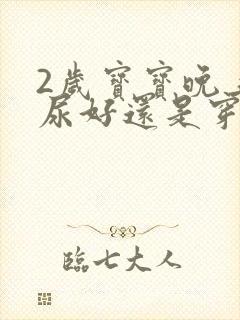 2歲寶寶晚
尿好還是穿
臨七大人